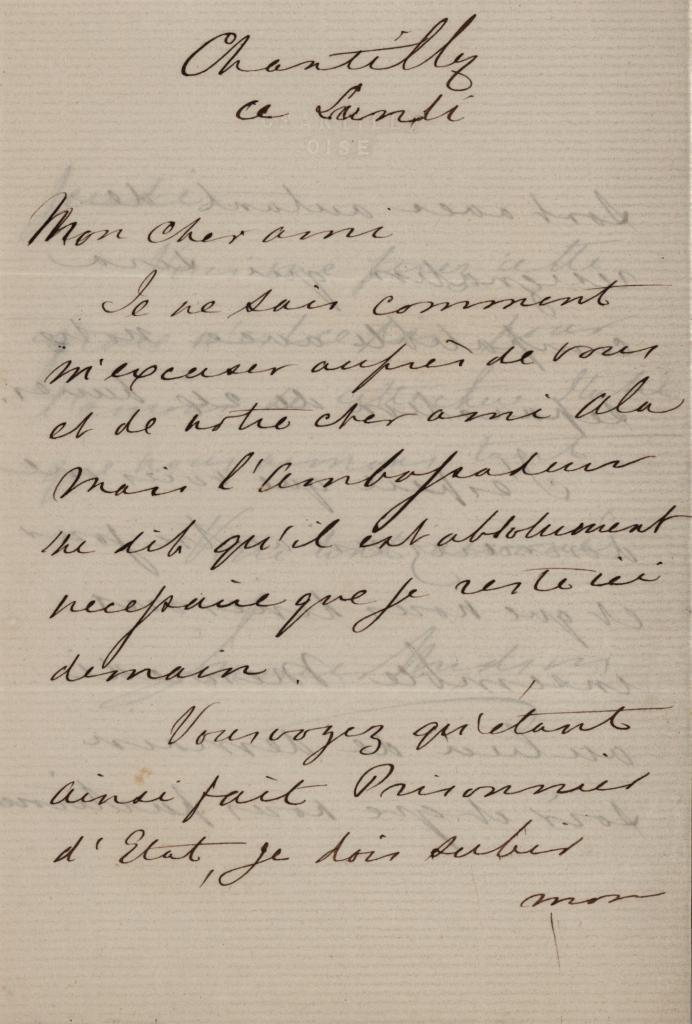 Chantilly
ce Lundi
OISE
Mon cher ami
Je ne sais comment
m'excuser auprès de vous
et de notre cher ami Ala
mais l'Ambassadeur
me dit qu'il est absolument
necessaire que je reste ici
demain.
Vous voyez qu'étant
ainsi fait Prisonnier
d'Etat, je dois subir
mon